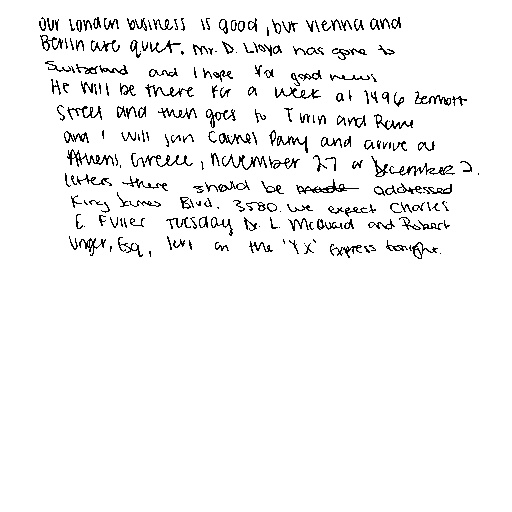 Our London business is good, but Vienna and
Berlin are quiet. Mr. D. Lloyd has gone to
Switzerland and I hope for good news
He will be there for a week at 1496 Zermott
Street and then goes to Turin and Rome
and I will join Colonel Parry and arrive at
Athens, Greece, November 27 or December 2.
letters there should be made addressed
King James Blvd. 3580. We expect Charles
E. Fuller Tuesday Dr. L. McQuaid and Robert
Unger, Esq, left on the 'YX' Express tonight.